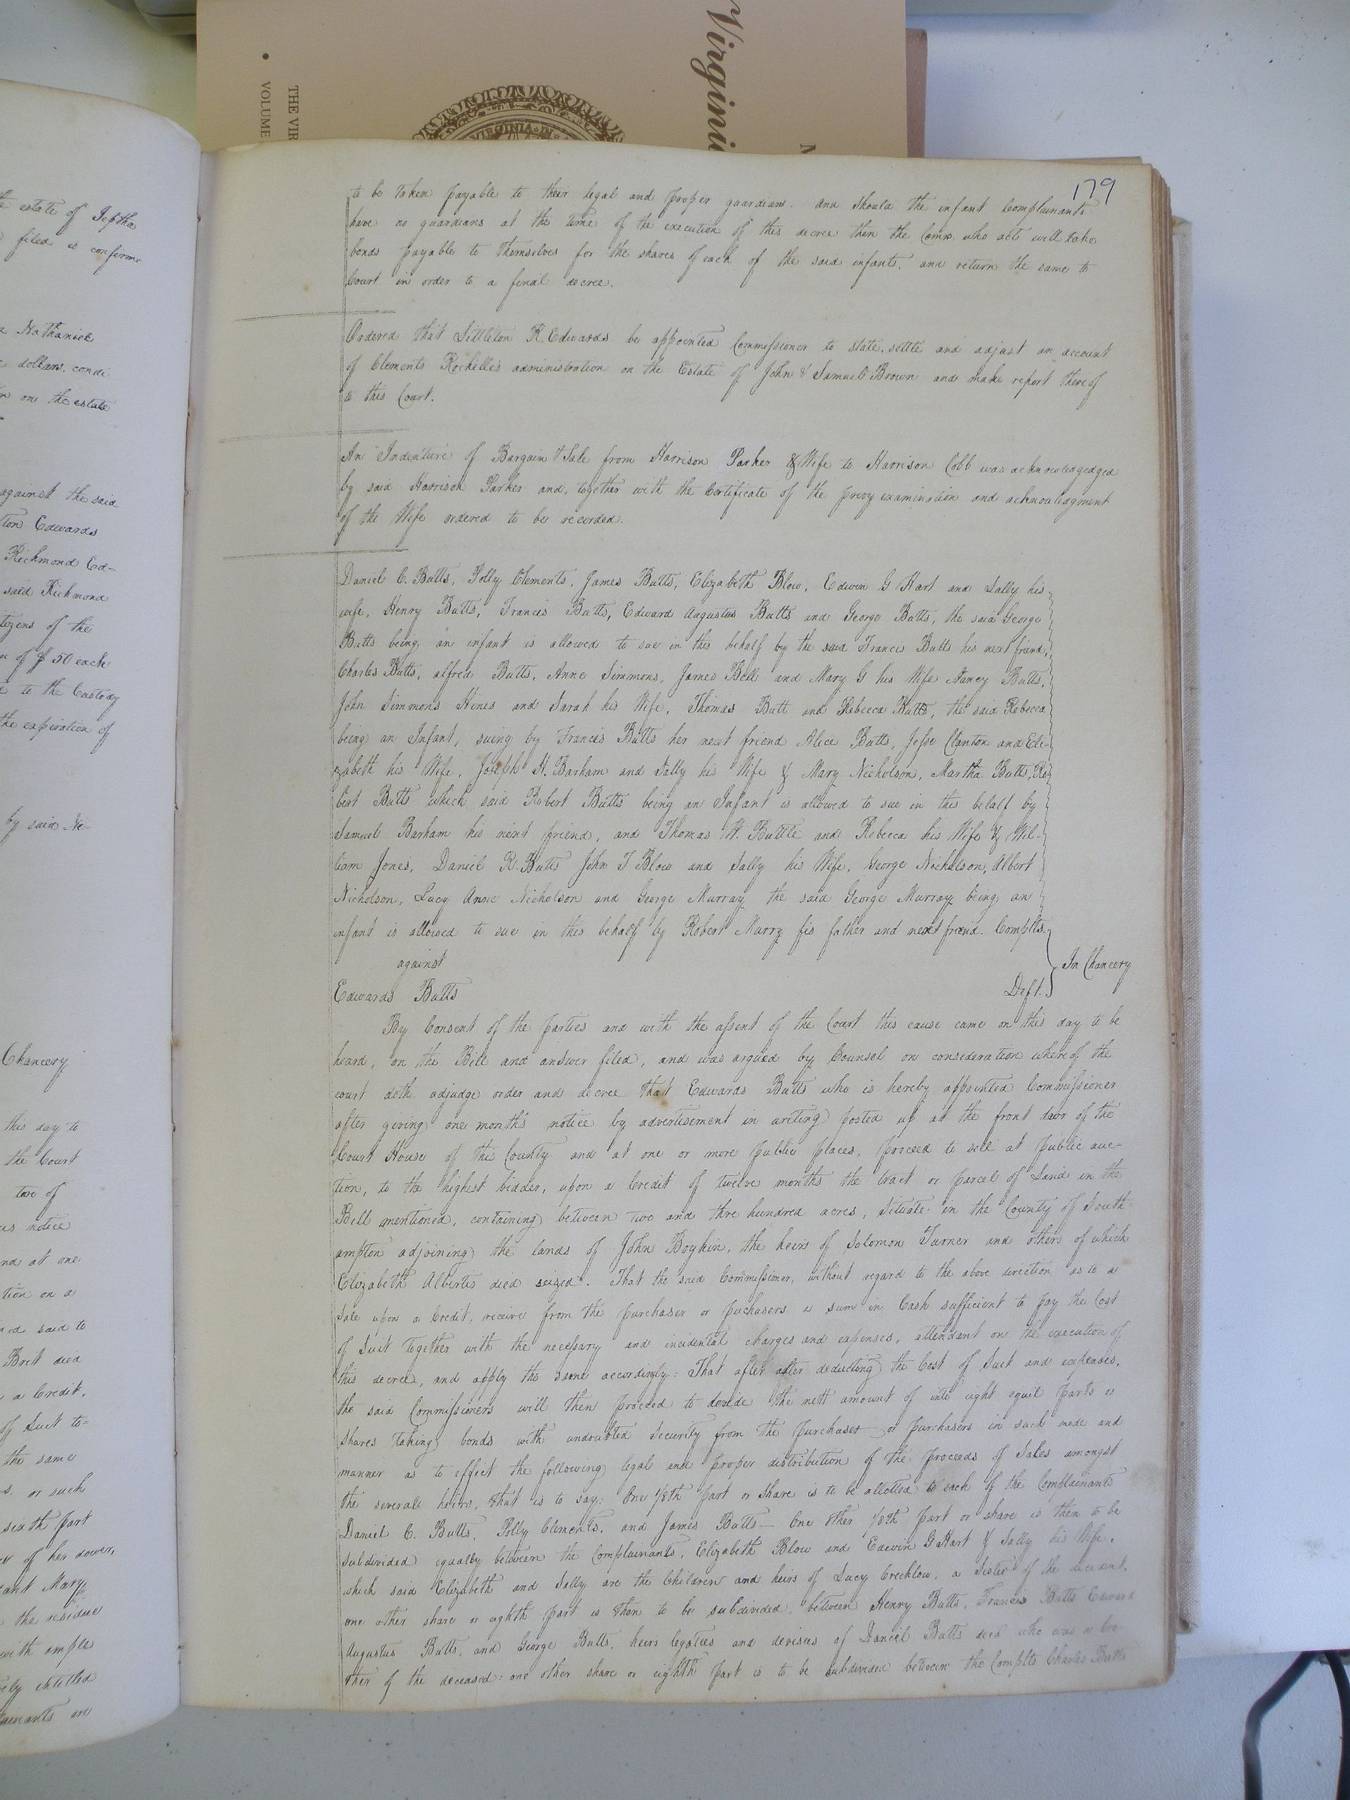 Virgini
THE VIR
VOLUME
VIRGINIA
179
to be taken payable to their legal and proper guardians. And Should the infant Complainants
have no guardians at the time of the execution of this decree then the Comrs. who acts will take
bonds payable to themselves for the shares of each of the said infants, and return the same to
Court in order to a final decree.
Ordered that Littleton R Edwards be appointed Commissioner to state, settle and adjust an account
of Clements Rochelle's administration on the Estate of John & Samuel Brown and make report thereof
to this Court.
An Indenture of Bargain & Sale from Harrison Parker & Wife to Harrison Cobb was acknowledgedged
by said Harrison Parker and, together with the Certificate of the privy examination and acknowledgment
of the Wife ordered to be recorded.
Daniel C. Butts, Polly Clements, James Butts, Elizabeth Blow, Edwin G Hart and Sally his
wife, Henry Butts, Francis Butts, Edward Augustus Butts and George Butts, the said George
Butts being an infant is allowed to sue in this behalf by the said Francis Butts his next friend,
Charles Butts, alfred Butts, Anne Simmons, James Bell and Mary G his Wife Nancy Butts,
John Simmons Hines and Sarah his Wife, Thomas Butt and Rebecca Butts, the said Rebecca
being an Infant, suing by Francis Butts her next friend Alice Butts, Jesse Clanton and Eli-
zabeth his Wife, Joseph H. Barham and Sally his Wife & Mary Nicholson, Martha Butts, Ro
bert Butts which said Robert Butts being an Infant is allowed to sue in this behalf by
Samuel Barham his next friend, and Thomas W. Buttle and Rebecca his Wife & Wil-
liam Jones, Daniel R. Butts John T Blow and Sally his Wife, George Nicholson, Albert
Nicholson, Lucy Anne Nicholson and George Murray the said George Murray being an
infant is allowed to sue in this behalf by Robert Murry his father and next friend. Complts.
against
In Chancery
Edwards Butts Deft.
By Consent of the parties and with the assent of the Court this cause came on this day to be
heard, on the Bill and answer filed, and was argued by Counsel on consideration whereof the
court doth adjudge order and decree that Edwards Butts who is hereby appointed Commissioner
after giving one months notice by advertisement in writing posted up at the front door of the
Court House of this County and at one or more public places, proceed to sell at public auc-
tion, to the highest bidder, upon a Credit of twelve months the tract or parcel of Land in the
Bill mentioned, containing between two and three hundred acres, Situate in the County of South
ampton adjoining the lands of John Boykin, the heirs of Solomon Turner and others of which
Elizabeth Alberts died seized. That the said Commissioner, without regard to the above direction as to a
Sale upon a Credit, receive from the purchaser or puchasers a sum in Cash sufficient to pay the Cost
of Suit together with the necessary and incidental charges and expenses, attendant on the execution of
this decree, and apply the same accordingly: That after after deducting the Cost of Suit and expenses,
the said Commissioners will then proceed to devide the nett amount of into eight equil parts or
shares taking bonds with undoubted Security from the purchaser or purchasers in such mode and
manner as to effect the following legal and proper distribution of the proceeds of Sales amongst
the severals heirs, that is to say: One 1/8th part or Share is to be allotted to each of the Complainants
Daniel C. Butts, Polly Clements, and James Butts — One other 1/8th part or share is then to be
subdivided equally between the Complainants, Elizabeth Blow and Edwin G Hart & Sally his Wife,
which said Elizabeth and Sally are the Children and heirs of Lucy Crechlow, a Sister of the decedent,
one other share or eighth part is then to be subdivided, between Henry Butts, Francis Butts Edward
Augustus Butts, and George Butts, heirs legaties and devisees of Daniel Butts decd who was a bro-
ther of the deceased: one other share or eighth part is to be subdivided between the Complts Charles Butts